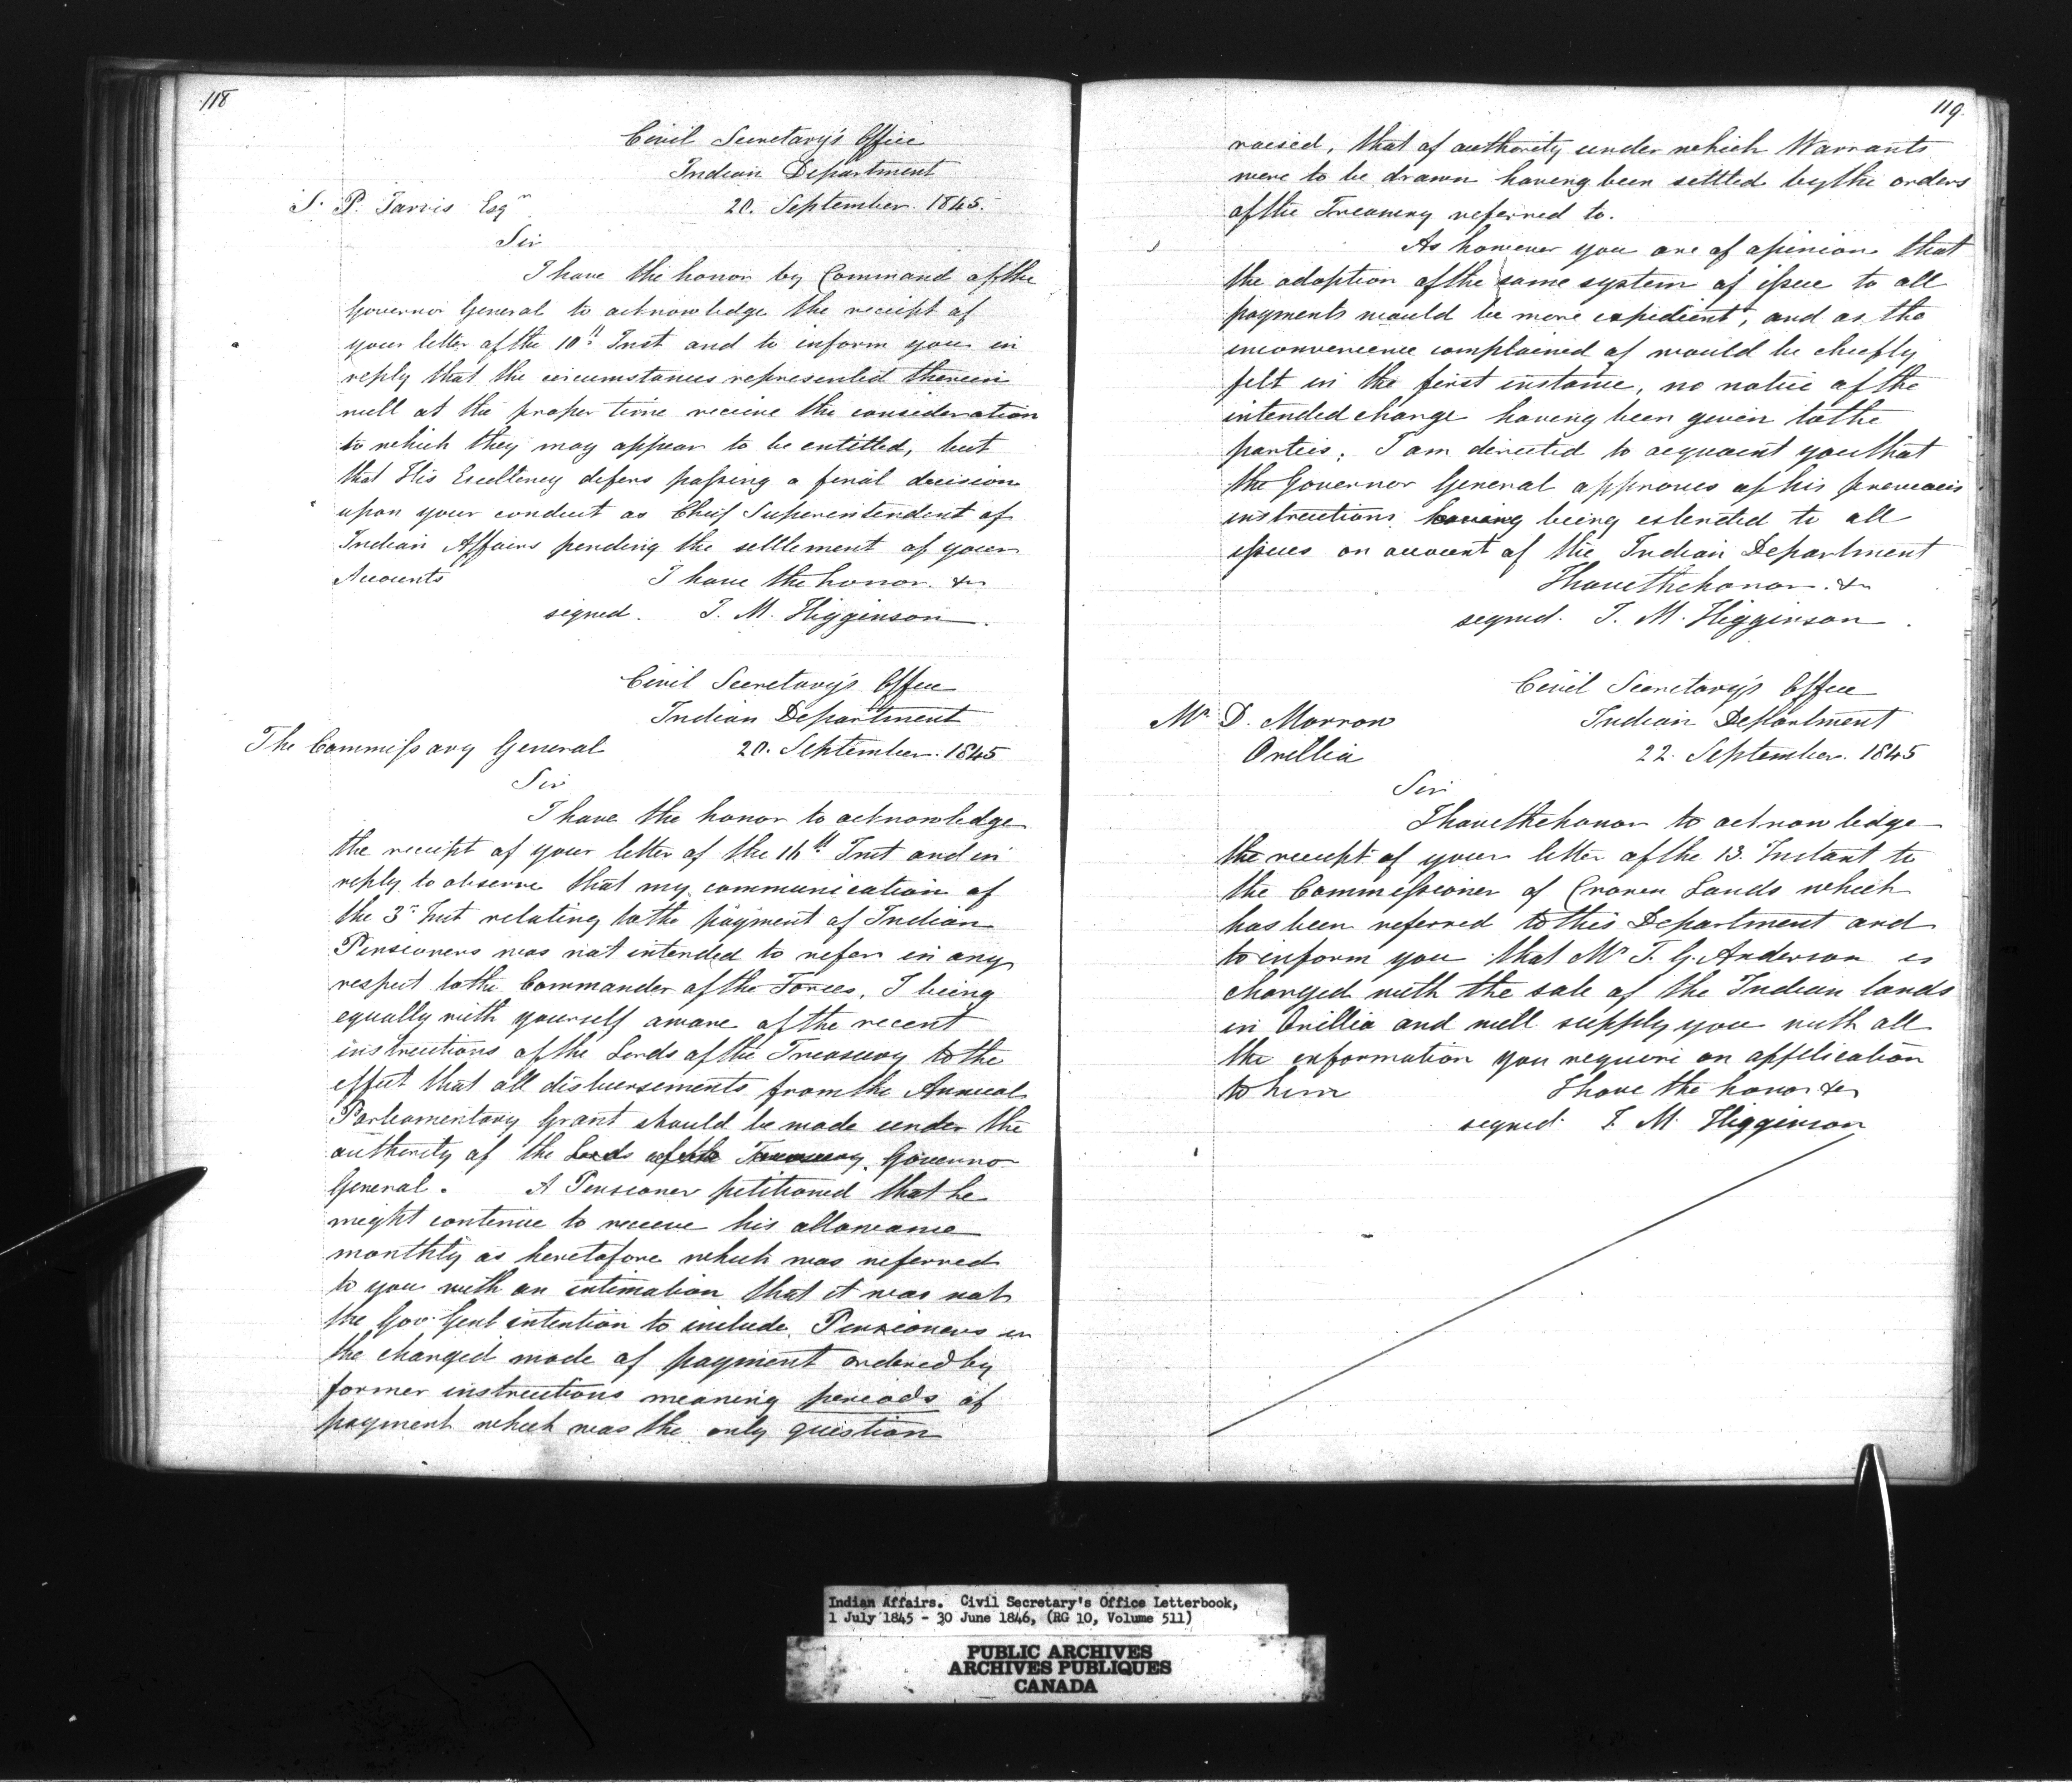 118
Civil Secretary's Office
Indian Department
S. P. Jarvis Esqr 20. September. 1845.
Sir
I have the honor by Command of the
Governor General to acknowledge the receipt of
your letter of the 10th Inst and to inform you in
reply that the circumstances represented therein
will at the proper time receive the consideration
to which they may appear to be entitled, but
that His Excellency defers passing a final decision
upon your conduct as Chief Superintendent of
Indian Affairs pending the settlement of your
Accounts I have the honor. &c
signed. J. M. Higginson.
Civil Secretary's Office
Indian Department
The Commissary General 20. September. 1845
Sir
I have the honor to acknowledge
the receipt of your letter of the 16th Inst and in
reply to observe that my communication of
the 3r Inst relating to the payment of Indian
Pensioners was not intended to refer in any
respect to the Commander of the Forces, I being
equally with yourself aware of the recent
instructions of the Lords of the Treasury to the
effect that all disbursements from the Annual
Parliamentary Grant should be made under the
authority of the Lords of the Treasury. Governor
General. A Pensioner petitioned that he
might continue to receive his allowance
monthly as heretofore which was referred
to you with an intimation that it was not
the Gov Genl intention to include Pensioners in
the changed mode of payment ordered by
former instructions meaning periods of
payment which was the only question
119
raised, that of authority under which Warrants
were to be drawn having been settled by the orders
of the Treasury referred to.
As however you are of opinion that
the adoption of the same system of issue to all
payments would be more expedient, and as the
inconvenience complained of would be chiefly
felt in the first instance, no notice of the
intended change having been given to the
parties; I am directed to acquaint you that
the Governor General approves of his previous
instructions having being extended to all
issues on account of the Indian Department
I have the honor. &c
signed. J. M. Higginson.
Civil Secretary's Office
Mr D. Morrow Indian Department
Orillia 22. September. 1845
Sir
I have the honor to acknowledge
the receipt of your letter of the 13. Instant to
the Commissioner of Crown Lands which
has been referred to this Department and
to inform you that Mr T. G. Anderson is
charged with the sale of the Indian lands
in Orillia and will supply you with all
the information you require on application
to him I have the honor &c
signed. J. M. Higginson
Indian Affairs. Civil Secretary's Office Letterbook,
1 July 1845 - 30 June 1846, (RG 10, Volume 511)
PUBLIC ARCHIVES
ARCHIVES PUBLIQUES
CANADA